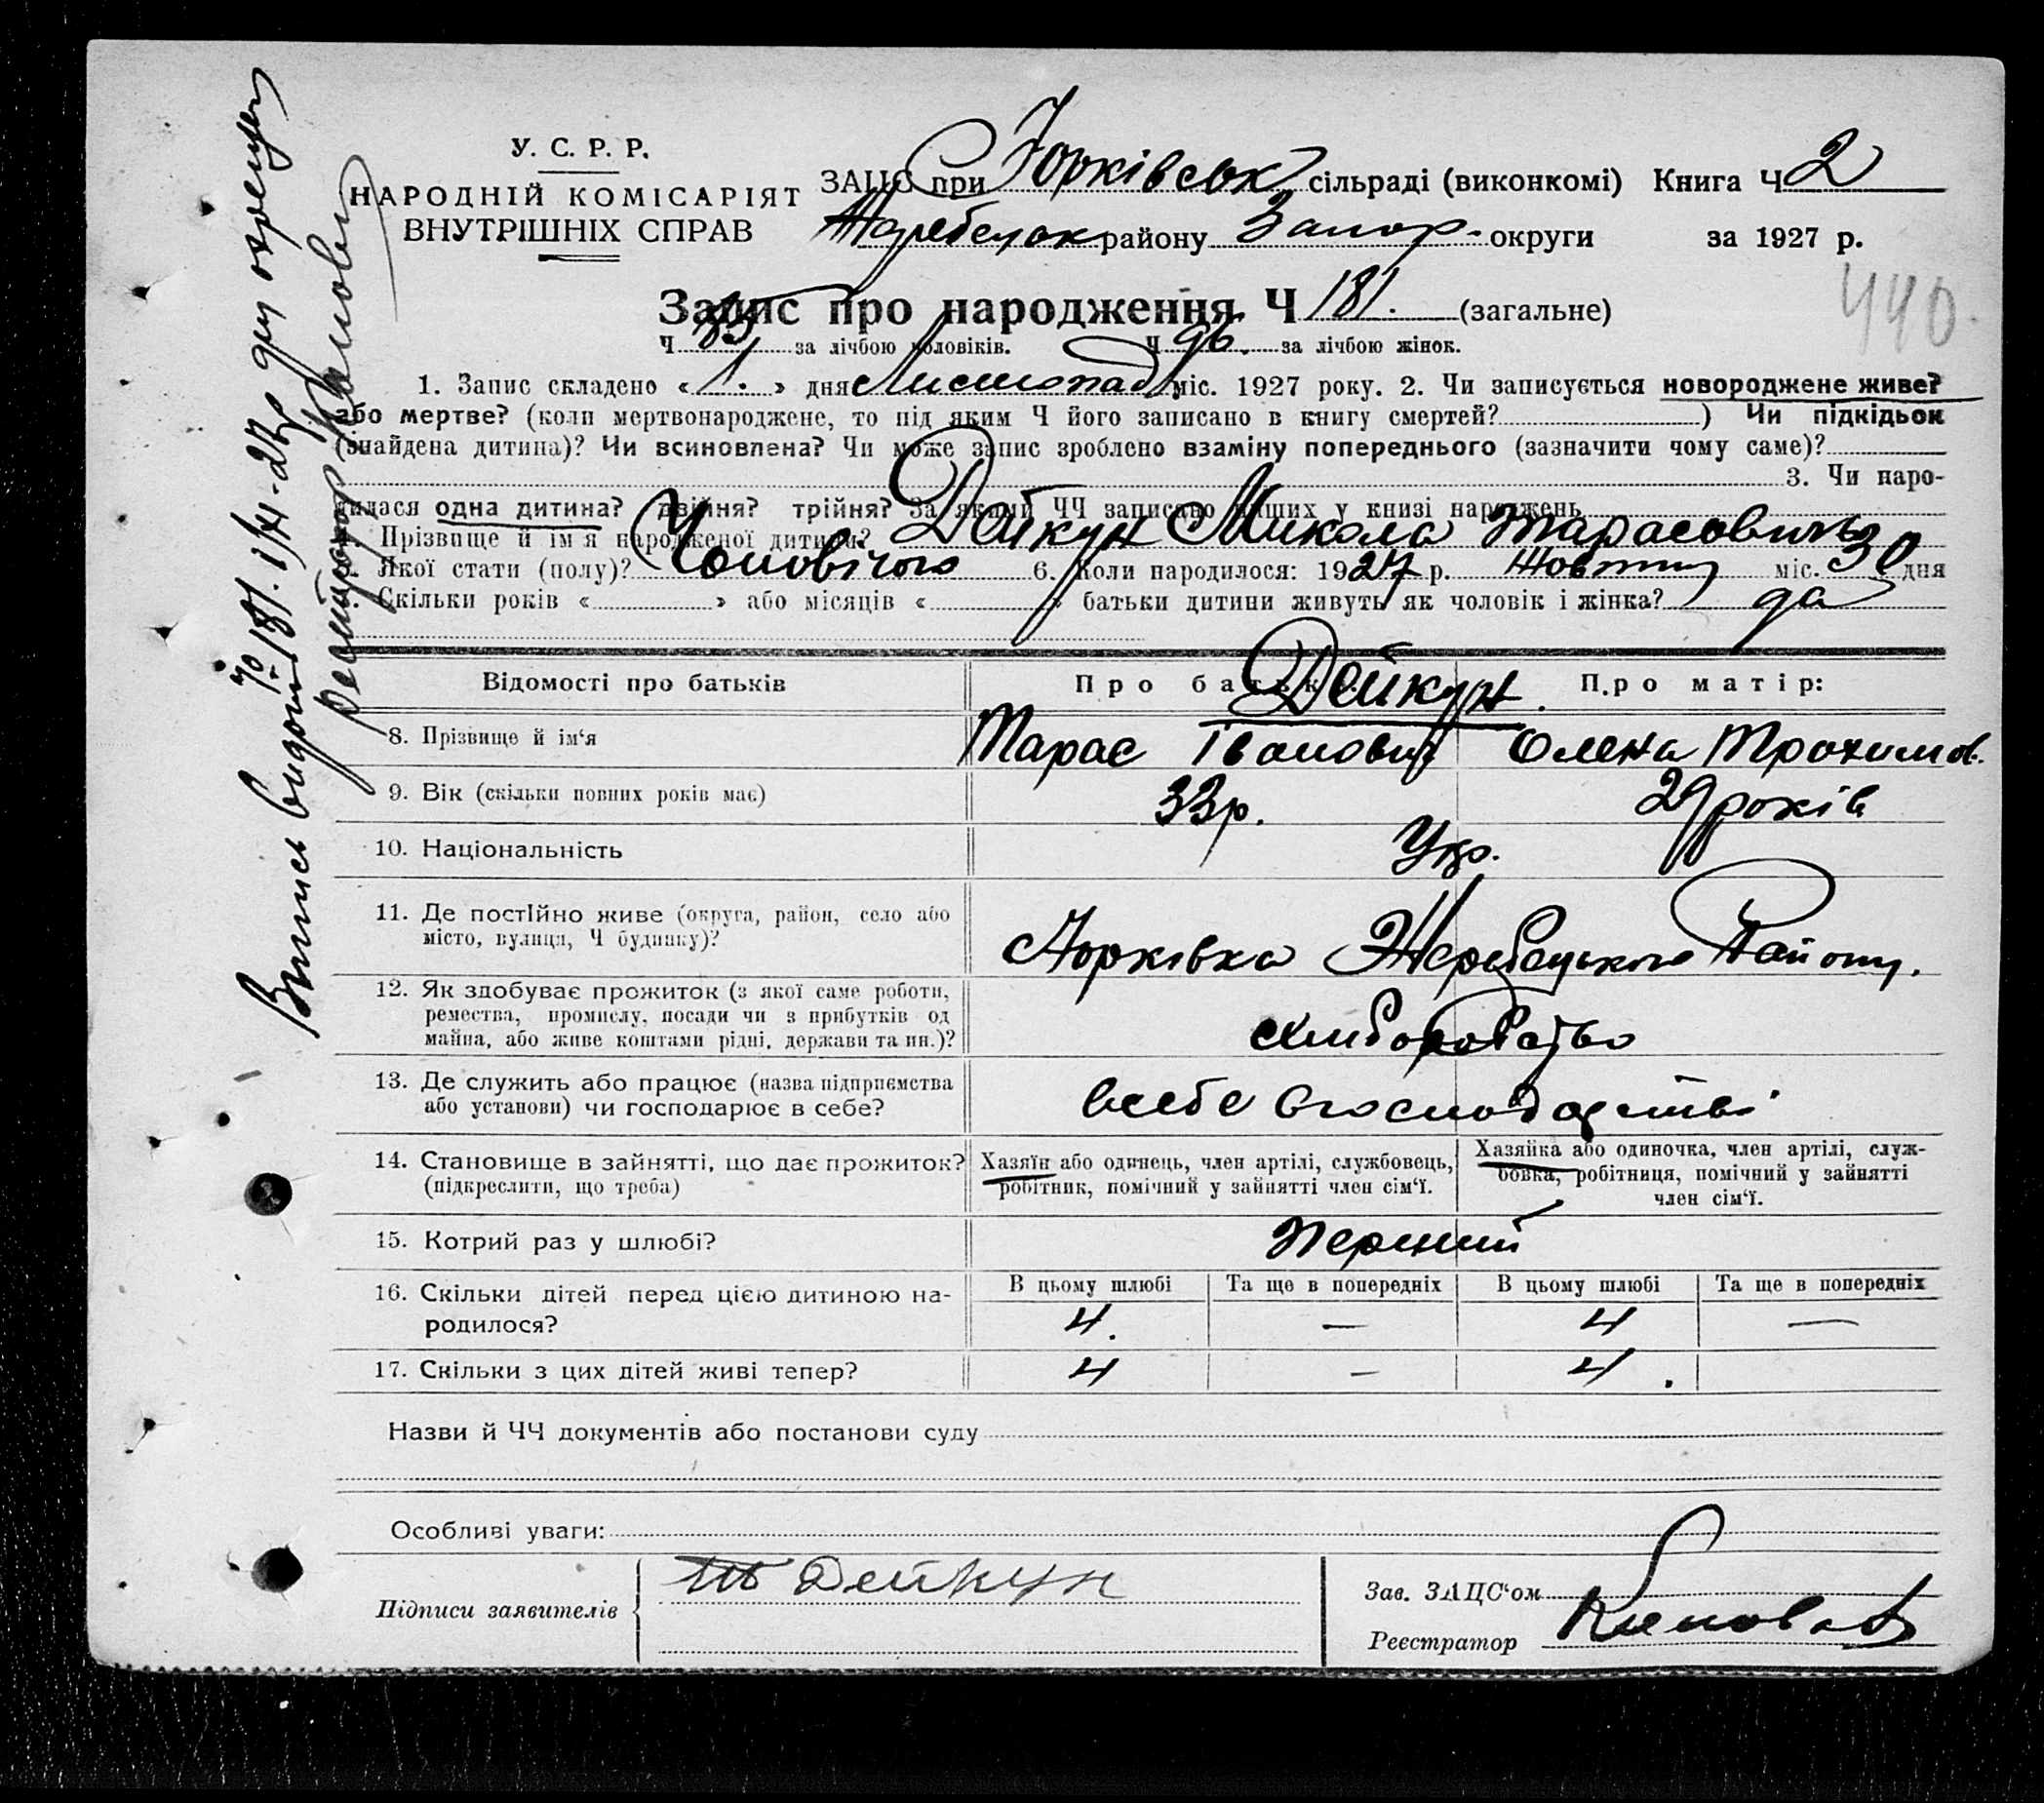 У. С. Р. Р.
НАРОДНІЙ КОМІСАРІЯТ
ВНУТРІШНІХ СПРАВ
ЗАЦС при Юрківськ сільраді (виконкомі) Книга Ч 2
району Запор. округи за 1927 р.
440
Запис про народження Ч 181. (загальне)
Ч 85 за лічбою чоловіків. Ч 96. за лічбою жінок.
1. Запис складено « 1. » дня Листопад міс. 1927 року. 2. Чи записується новороджене живе?
або мертве? (коли мертвонароджене, то під яким Ч його записано в книгу смертей? ) Чи підкідьок
(знайдена дитина)? Чи всиновлена? Чи може запис зроблено взаміну попереднього (зазначити чому саме)?
3. Чи наро-
дилася одна дитина? двійня? трійня? За якими ЧЧ записано інших у книзі народжень
Прізвище й ім'я народженої дитини? Дейкун Микола Тарасович
Якої стати (полу)? Чоловічого 6. Коли народилося: 1927 р. Жовтня міс. 30 дня
Скільки років « » або місяців « » батьки дитини живуть як чоловік і жінка? да
Відомості про батьків Про батька: Про матір:
Дейкун.
8. Прізвище й ім'я Тарас Іванович Олена Трохимов.
9. Вік (скільки повних років має) 33р. 29 років
10. Національність Укр.
11. Де постійно живе (округа, район, село або
місто, вулиця, Ч будинку)? Юрківка Жеребецького Району.
12. Як здобуває прожиток (з якої саме роботи,
ремества, промислу, посади чи з прибутків од
майна, або живе коштами рідні, держави та ин.)?
13. Де служить або працює (назва підприємства
або установи) чи господарює в себе? всебе вгосподарстві
14. Становище в зайнятті, що дає прожиток?
(підкреслити, що треба)
Хазяїн або одинець, член артілі, службовець,
робітник, помічний у зайнятті член сім'ї.
Хазяйка або одиночка, член артілі, служ-
бовка, робітниця, помічний у зайнятті
член сім'ї.
15. Котрий раз у шлюбі? Перший
16. Скільки дітей перед цією дитиною на-
родилося?
В цьому шлюбі Та ще в попередніх В цьому шлюбі Та ще в попередніх
4. — 4 —
17. Скільки з цих дітей живі тепер? 4 — 4.
Назви й ЧЧ документів або постанови суду
Особливі уваги:
Підписи заявителів Дейкун
Зав. ЗАЦС'ом
Реєстратор